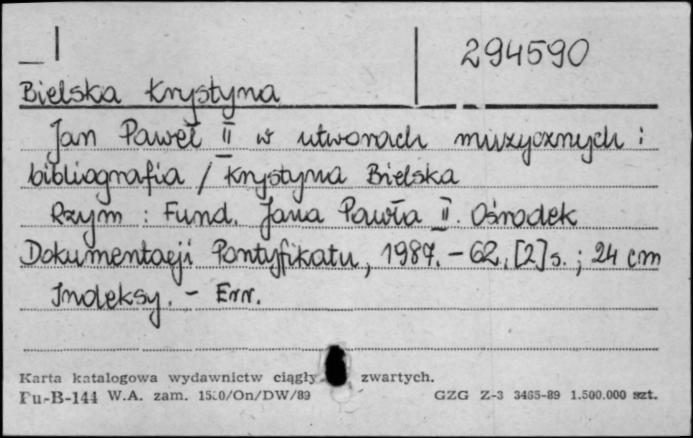 294590
Bielska Krystyna
Jan Paweł II w utworach muzycznych :
bibliografia / Krystyna Bielska
Rzym : Fund. Jana Pawła II. Ośrodek
Dokumentacji Pontyfikatu, 1987. – 62, [2] s. ; 24 cm
Indeksy. – Err.
Karta katalogowa wydawnictw ciągły zwartych.
Pu-B-144 W.A. zam. /On/DW/89 GZG Z-3 3465-89 1.500.000 szt.